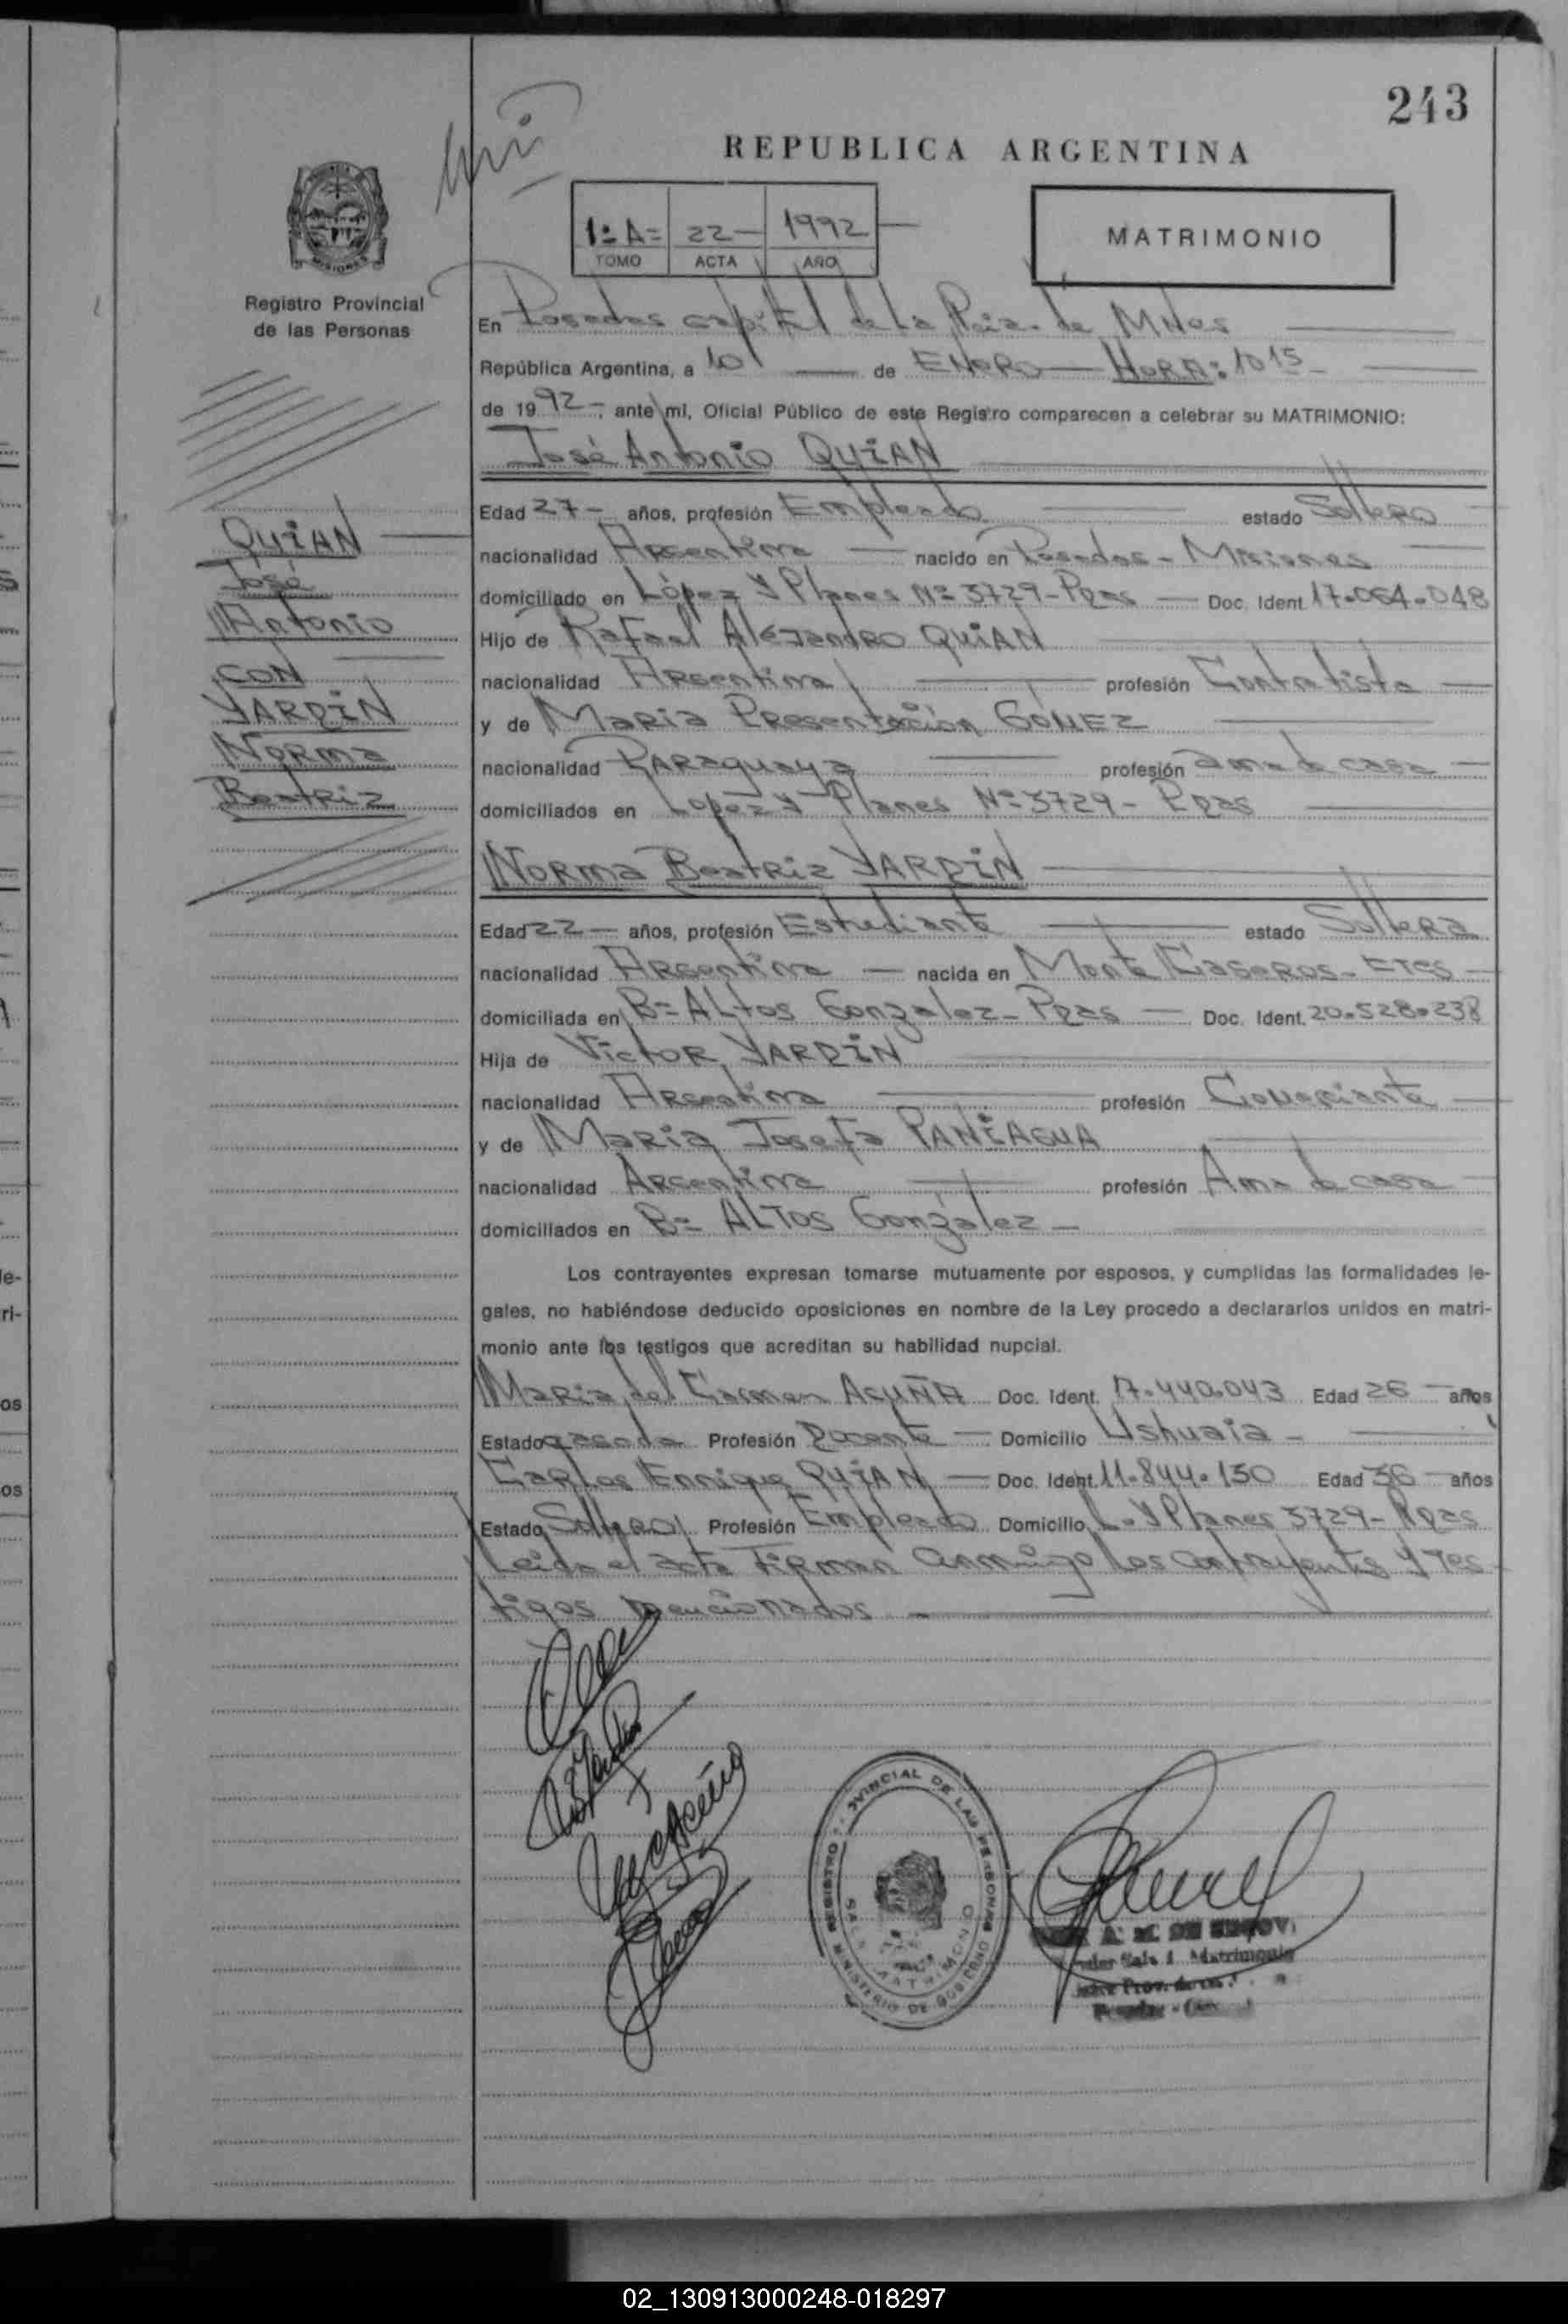 243
REPUBLICA ARGENTINA
1º A= 22- 1992
TOMO ACTA AÑO
MATRIMONIO
Registro Provincial
de las Personas
En Posadas capital de la Pcia. de Mnes
República Argentina, a 10 de ENERO HORA: 10 15
de 19 92-, ante mi, Oficial Público de este Registro comparecen a celebrar su MATRIMONIO:
José Antonio QUIAN
Edad 27- años, profesión Empleado estado Soltero
nacionalidad Argentina nacido en Posadas - Misiones
domiciliado en López Y Planes Nº 3729-Pdas Doc. Ident. 17.064.048
Hijo de Rafael Alejandro QUIAN
nacionalidad Argentina profesión Contratista
y de Maria Presentación GÓMEZ
nacionalidad Paraguaya profesión ama de casa
domiciliados en Lopez y Planes Nº 3729- Pdas
QUIAN
José
Antonio
CON
YARDIN
Norma
Beatriz
Norma Beatriz YARDIN
Edad 22 años, profesión Estudiante estado Soltera
nacionalidad Argentina nacida en Monte Caseros - Ctes
domiciliada en Bº Altos Gonzalez - Pdas Doc. Ident. 20.528.238
Hija de Victor YARDIN
nacionalidad Argentina profesión Comerciante
y de Maria Josefa PANIAGUA
nacionalidad Argentina profesión Ama de casa
domiciliados en Bº ALTOS González -
Los contrayentes expresan tomarse mutuamente por esposos, y cumplidas las formalidades le-
gales, no habiéndose deducido oposiciones en nombre de la Ley procedo a declararlos unidos en matri-
monio ante los testigos que acreditan su habilidad nupcial.
Maria del Carmen ACUÑA Doc. Ident. 17.440.043 Edad 26 años
Estado casada Profesión Docente Domicilio Ushuaia -
Carlos Enrique QUIAN Doc. Ident. 11.844.130 Edad 36 años
Estado Soltero Profesión Empleado Domicilio L. Y Planes 3729- Pdas
Leida el acta Firman conmigo los contrayentes y Tes
tigos mencionados -
REGISTRO PROVINCIAL DE LAS PERSONAS
MINISTERIO DE GOBIERNO
SALA MATRIMONIO
02_130913000248-018297